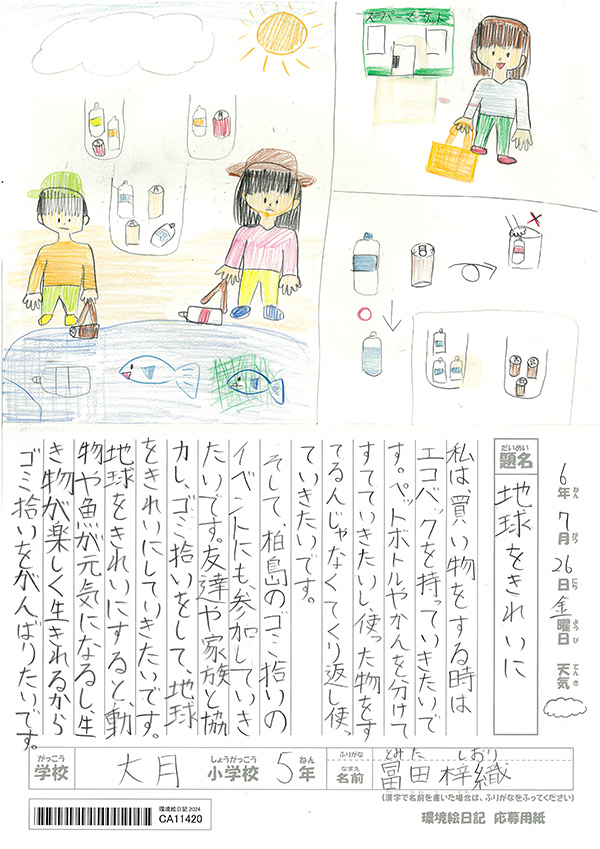 スーパーマーケット
6年7月26日金曜日 天気
ねん がつ にち ようび てんき
だいめい
題名
地球をきれいに
私は、買い物をする時は
エコバックを持っていきたいで
す。ペットボトルやかんを分けて
すてていきたいし、使った物をす
てるんじゃなくてくり返し使っ
ていきたいです。
そして、柏島のゴミ拾いの
イベントにも、参加していき
たいです。友達や家族と協
力し、ゴミ拾いをして、地球
をきれいにしていきたいです。
地球をきれいにすると、動
物や魚が元気になるし、生
き物が楽しく生きれるから
ゴミ拾いをがんばりたいです。
がっこう しょうがっこう ねん
学校 大月 小学校 5年
ふりがな とみた しおり
なまえ
名前 冨田梓織
(漢字で名前を書いた場合は、ふりがなをふってください)
環境絵日記2024
CA11420
環境絵日記 応募用紙